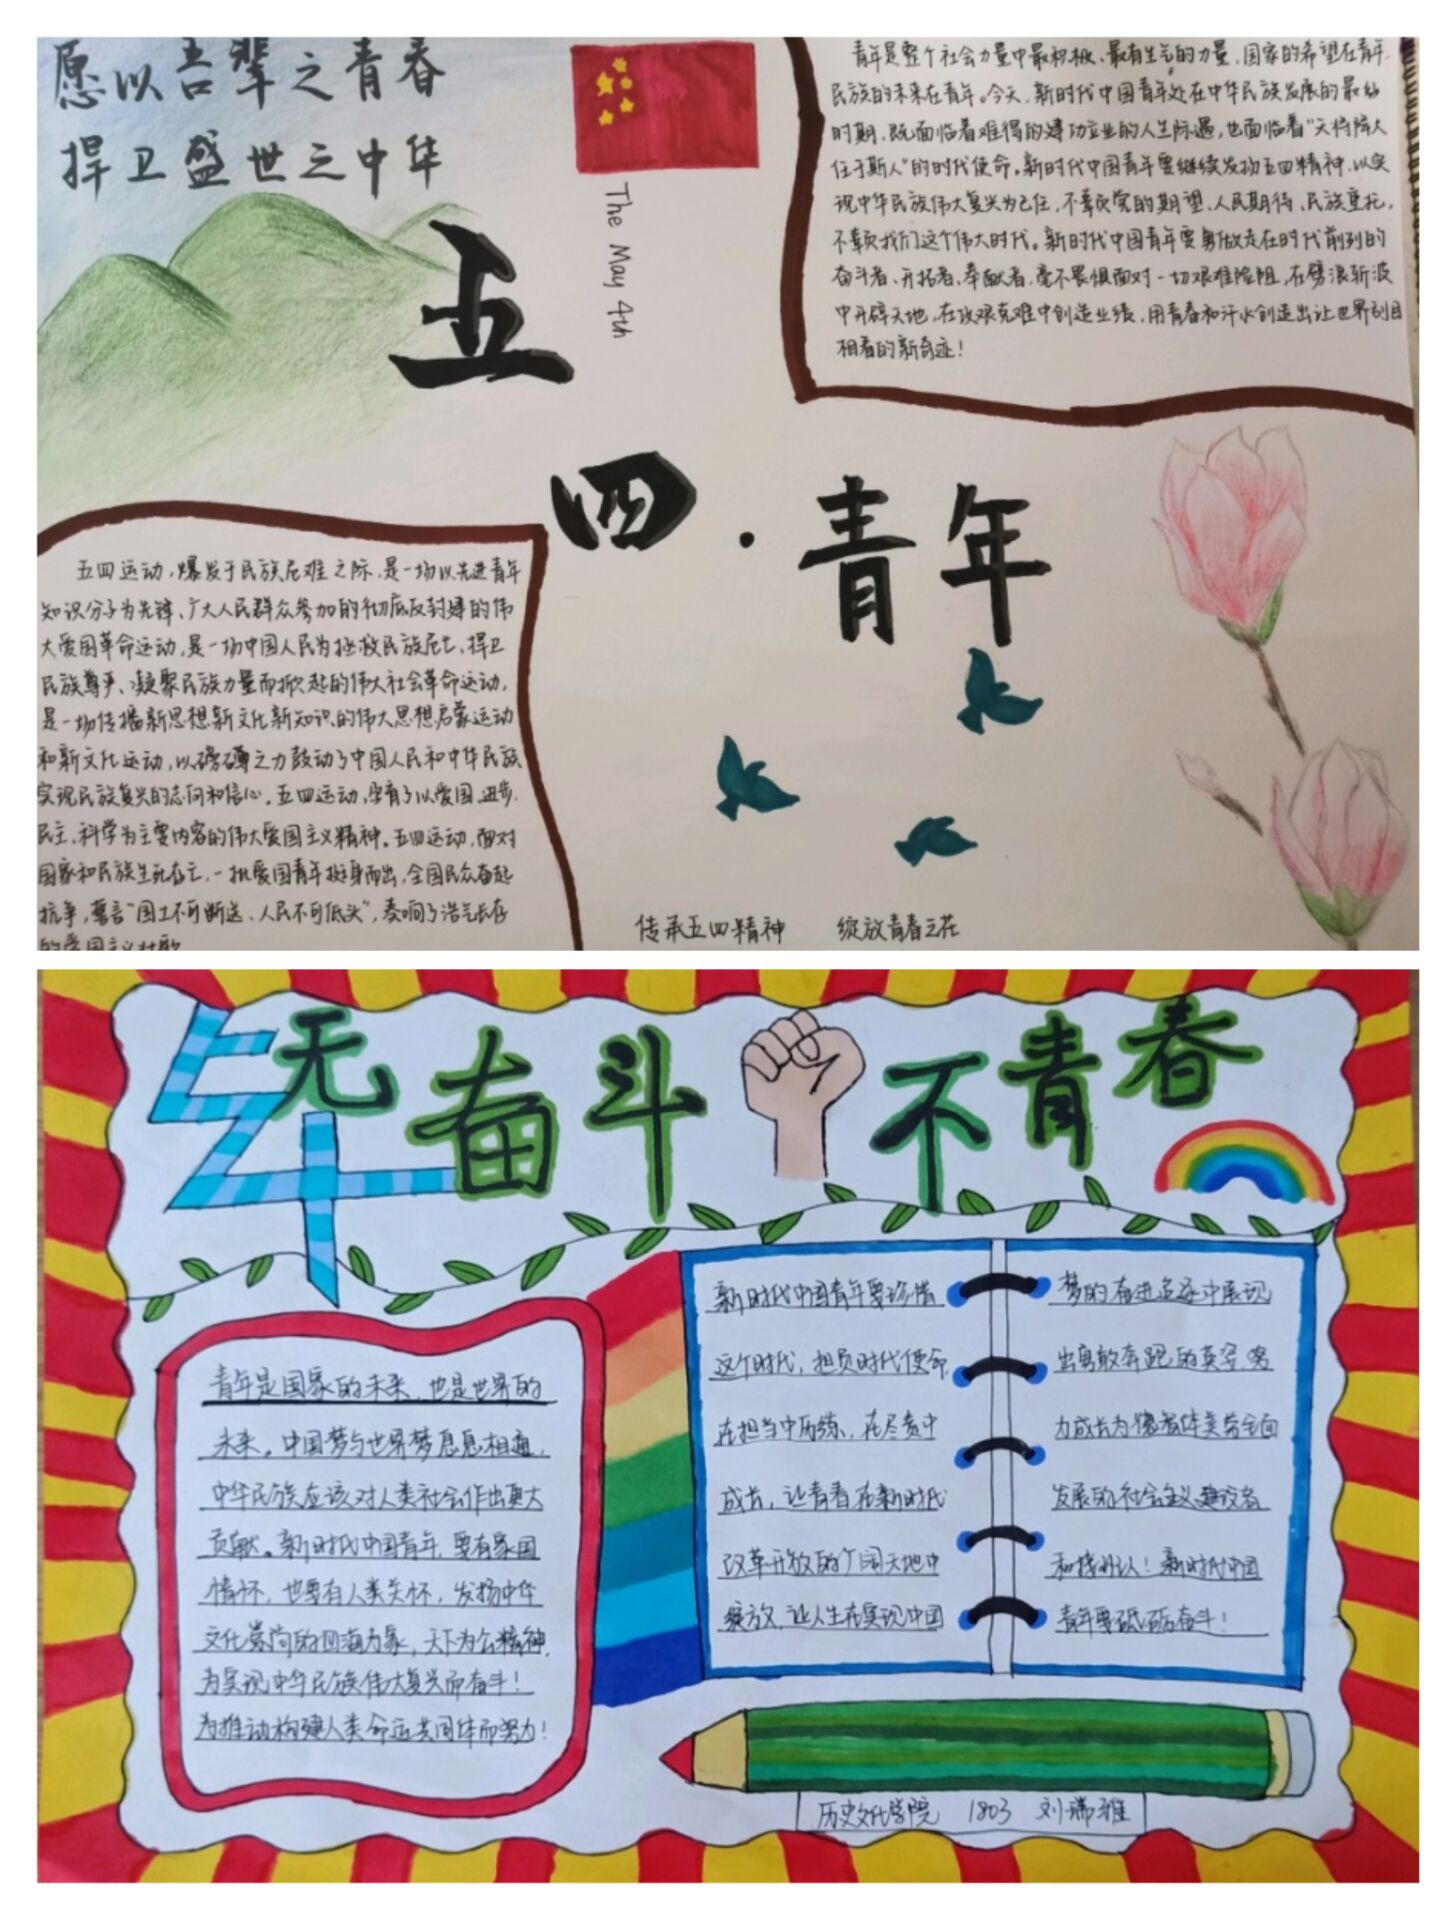 愿以吾辈之青春
捍卫盛世之中华
The May 4th
五四·青年
青年是整个社会力量中最积极、最有生气的力量，国家的希望在青年，
民族的未来在青年。今天，新时代中国青年处在中华民族发展的最好
时期，既面临着难得的建功立业的人生际遇，也面临着“天将降大
任于斯人”的时代使命。新时代中国青年要继续发扬五四精神，以实
现中华民族伟大复兴为己任，不辜负党的期望、人民期待、民族重托，
不辜负我们这个伟大时代。新时代中国青年要勇做走在时代前列的
奋斗者、开拓者、奉献者，毫不畏惧面对一切艰难险阻，在劈浪斩波
中开辟天地，在攻艰克难中创造业绩，用青春和汗水创造出让世界刮目
相看的新奇迹！
五四运动，爆发于民族危难之际，是一场以先进青年
知识分子为先锋、广大人民群众参加的彻底反封建的伟
大爱国革命运动，是一场中国人民为拯救民族危亡、捍卫
民族尊严、凝聚民族力量而掀起的伟大社会革命运动，
是一场传播新思想新文化新知识的伟大思想启蒙运动
和新文化运动，以磅礴之力鼓动了中国人民和中华民族
实现民族复兴的志向和信心。五四运动，孕育了以爱国、进步、
民主、科学为主要内容的伟大爱国主义精神。五四运动，面对
国家和民族生死存亡，一批爱国青年挺身而出，全国民众奋起
抗争，誓言“国土不可断送、人民不可低头”，奏响了浩气长存
的爱国主义壮歌
传承五四精神 绽放青春之花
无奋斗 不青春
青年是国家的未来，也是世界的
未来。中国梦与世界梦息息相通，
中华民族应该对人类社会作出更大
贡献。新时代中国青年，要有家国
情怀，也要有人类关怀，发扬中华
文化崇尚的四海为家，天下为公精神，
为实现中华民族伟大复兴而奋斗！
为推动构建人类命运共同体而努力！
新时代中国青年要珍惜
这个时代，担负时代使命
在担当中历练，在尽责中
成长，让青春在新时代
改革开放的广阔天地中
绽放，让人生在实现中国
梦的奋进追逐中展现
出勇敢奔跑的英姿，努
力成长为德智体美劳全面
发展的社会主义建设者
和接班人！新时代中国
青年要砥砺奋斗！
历史文化学院 1803 刘瑞雅